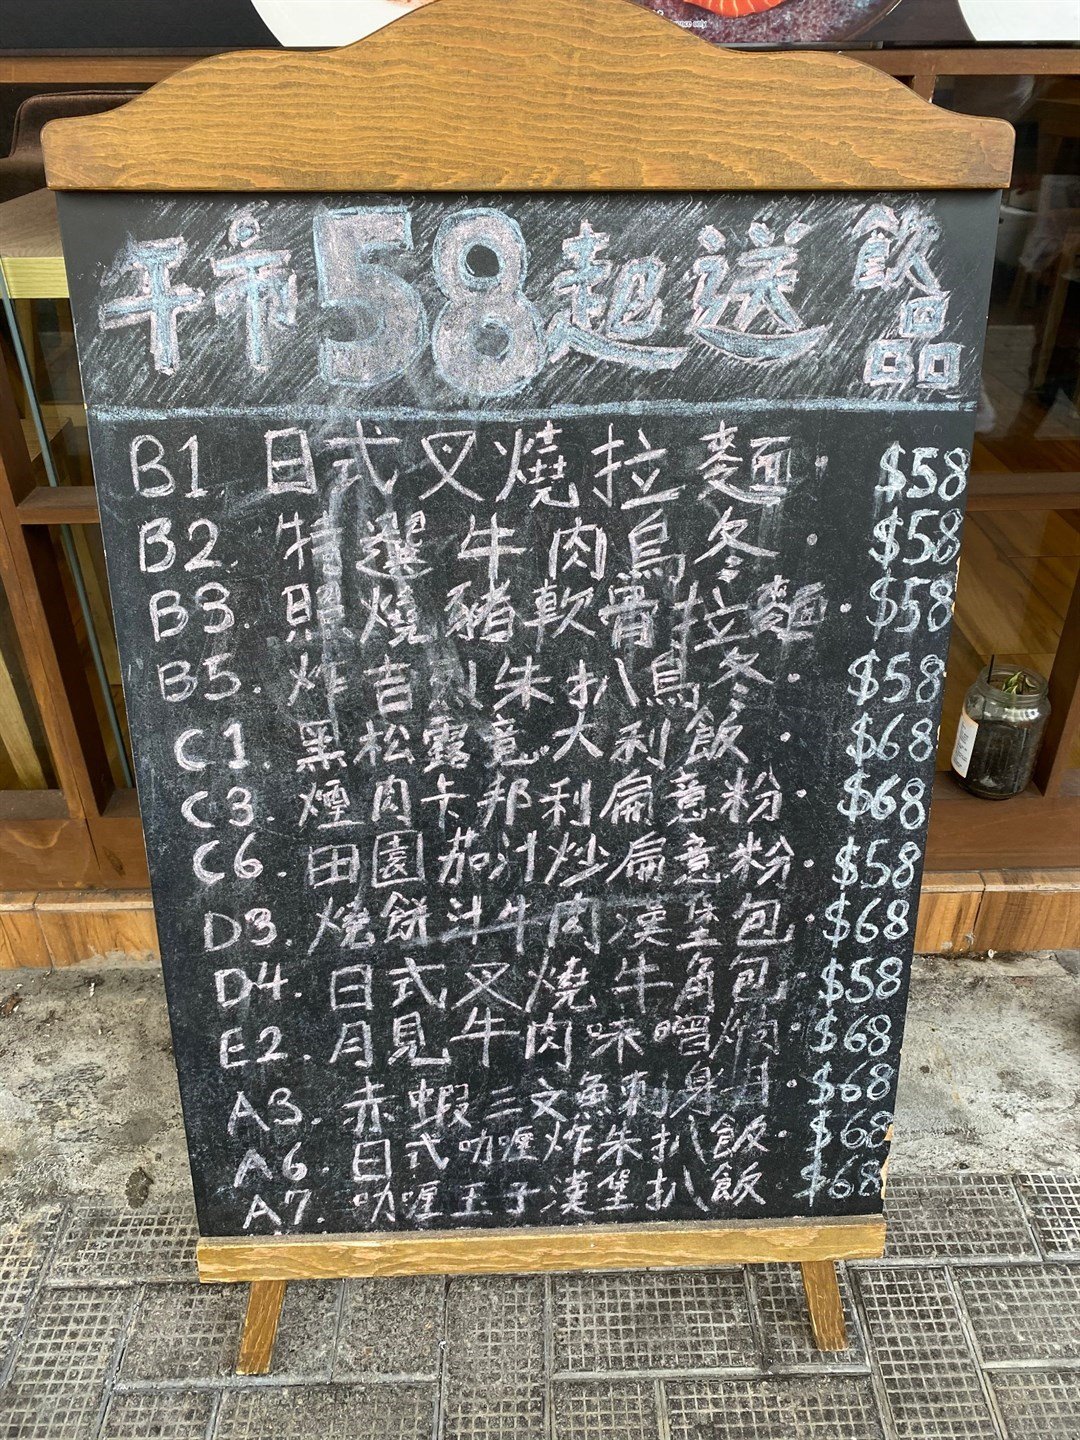 午市58起送飲品
B1 日式叉燒拉麵. $58
B2. 特選牛肉烏冬. $58
B3. 照燒豬軟骨拉麵. $58
B5. 炸吉列朱扒烏冬. $58
C1. 黑松露意大利飯. $68
C3. 煙肉卡邦利扁意粉. $68
C6. 田園茄汁炒扁意粉. $58
D3. 燒餅斗牛肉漢堡包. $68
D4. 日式叉燒牛角包. $58
E2. 月見牛肉味噌焗. $68
A3. 赤蝦三文魚刺身丼. $68
A6. 日式咖喱炸朱扒飯. $68
A7. 咖喱玉子漢堡扒飯 $68